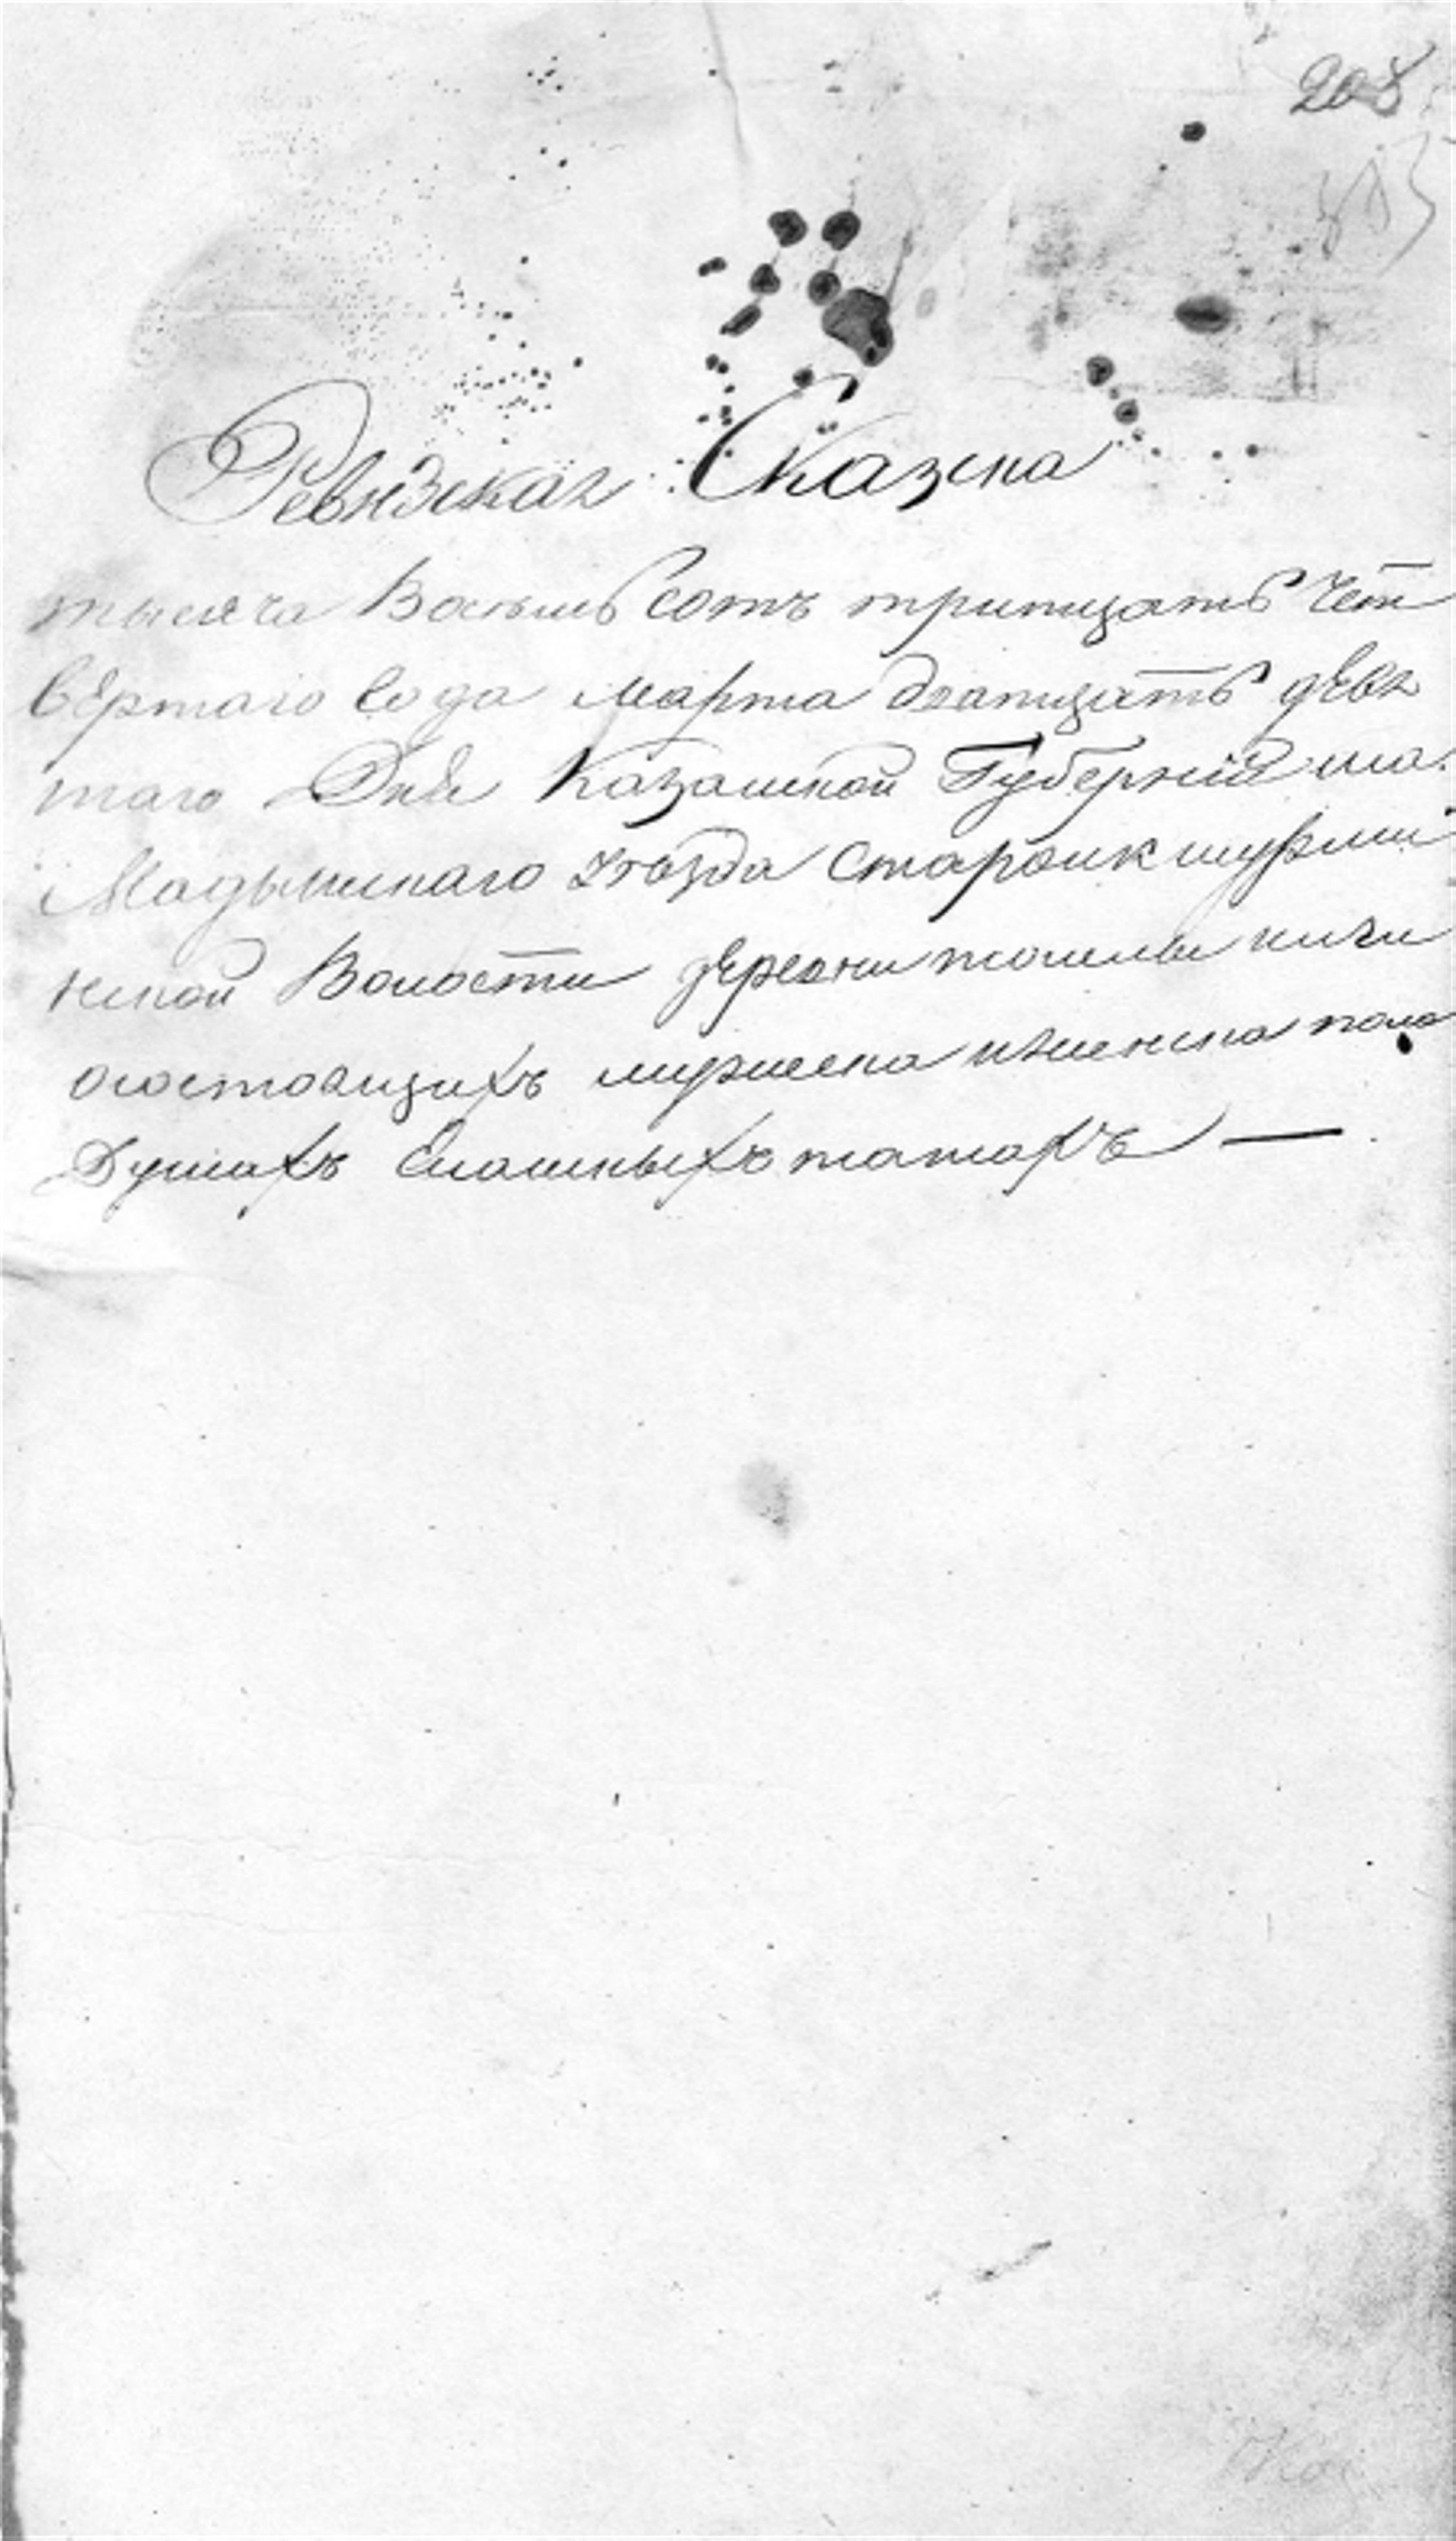 208
Ревизская Сказка
тысяча Восемь Сотъ тритцать Чет
вертаго года марта дватцать девя
таго Дня Казанской Губернiи ма
Мадышскаго уѣзда Старо
нской Волости деревни
о состоящихъ мужеска и женска пола
Душахъ Ясашныхъ татаръ —